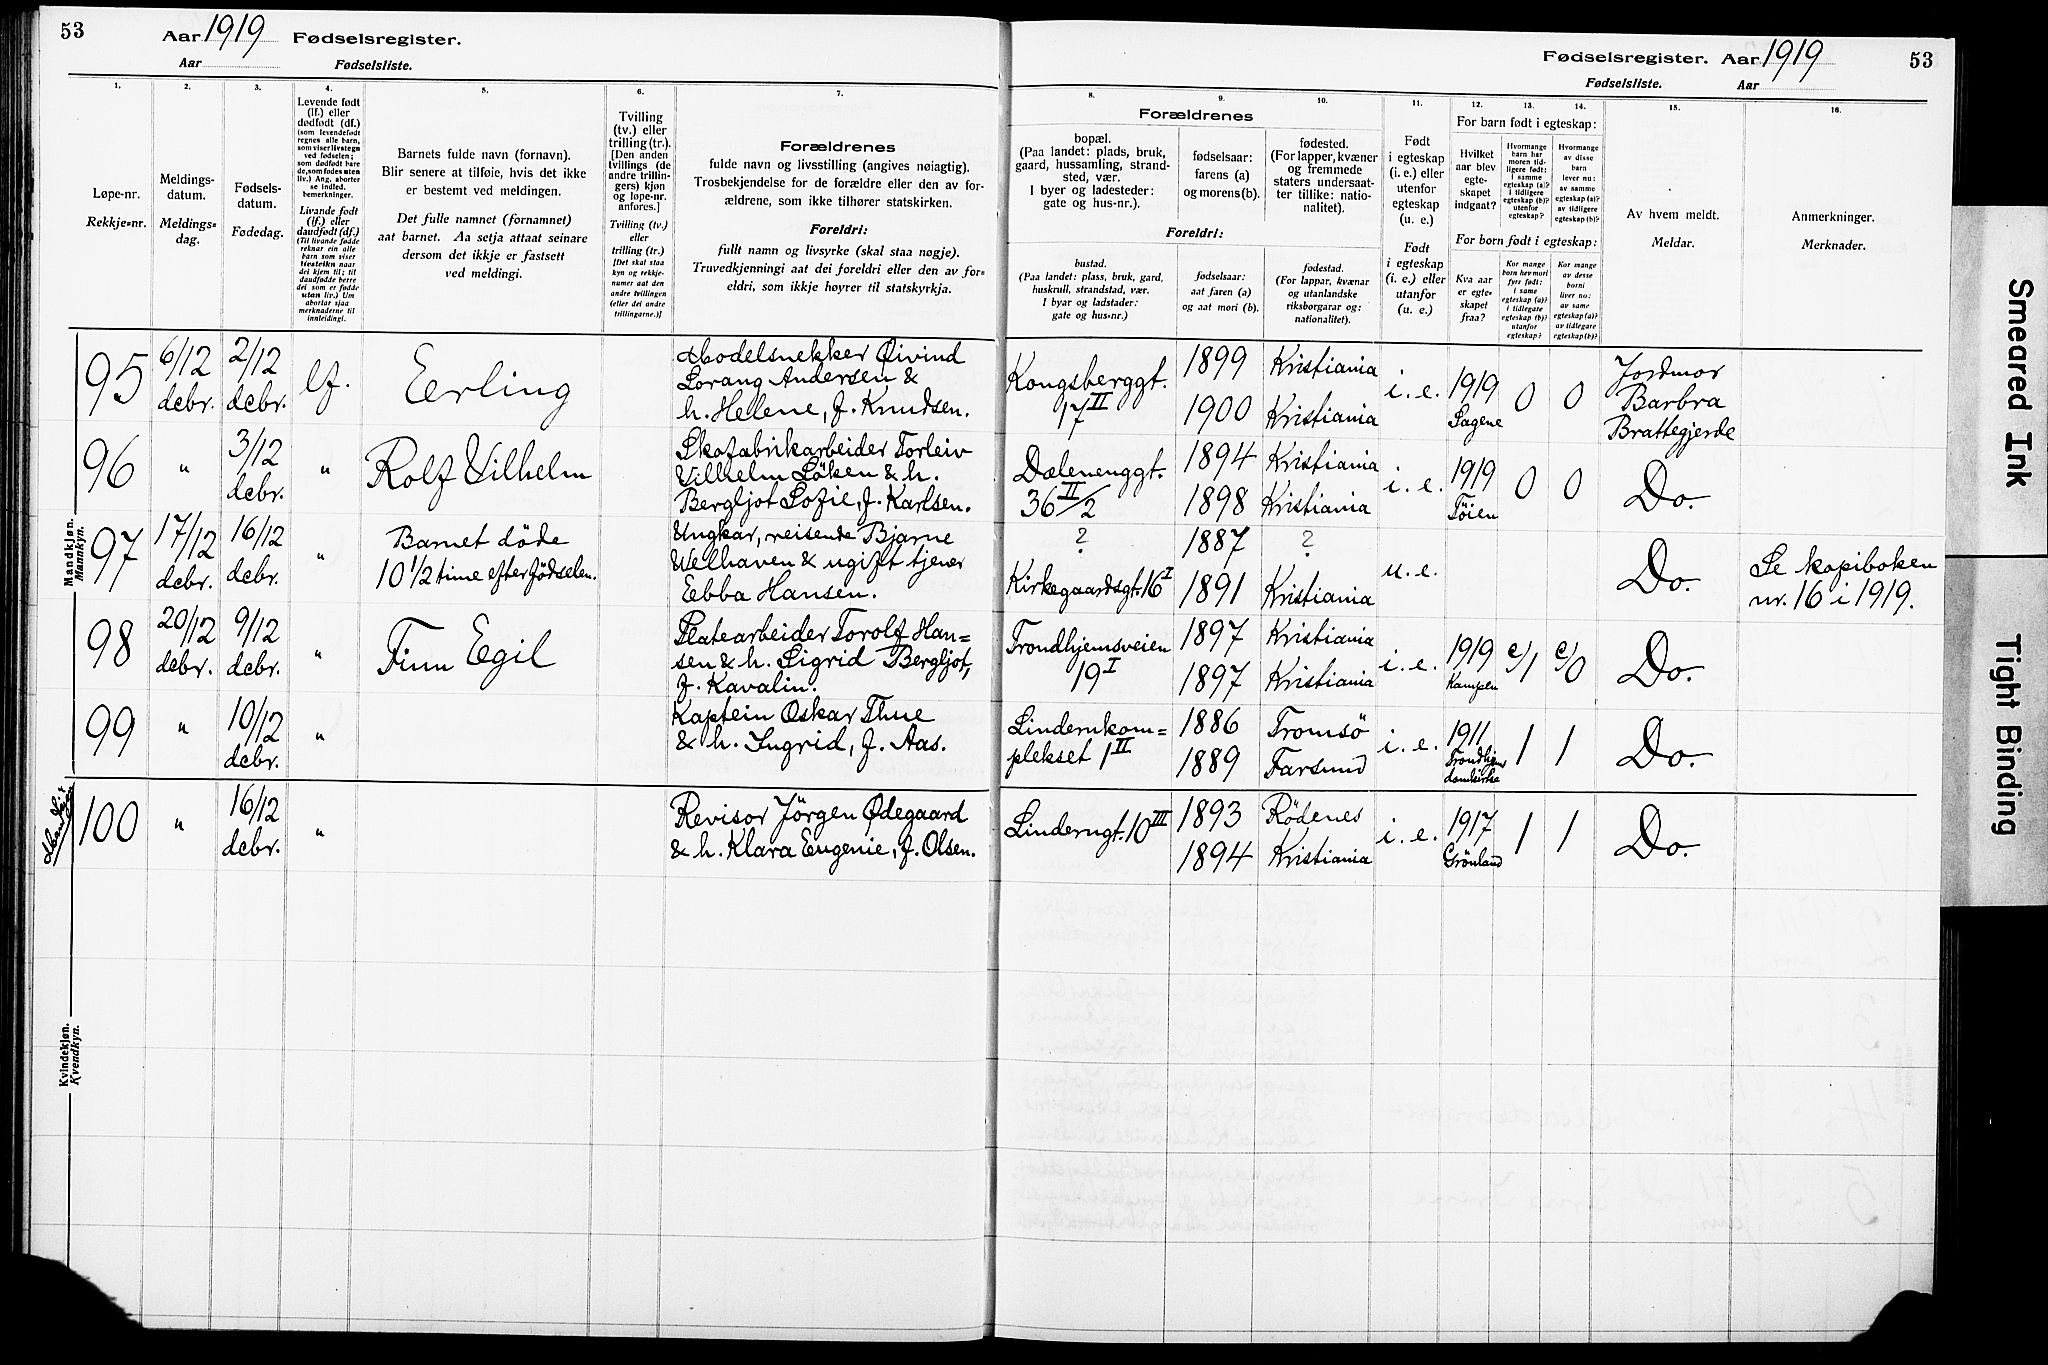 53
Aar 1919 Fødselsregister.
Aar Fødselsliste.
Fødselsregister. Aar 1919
Fødselsliste. Aar
53
1.
Løpe-nr.
Rekkje=nr.
2.
Meldings-
datum.
Meldings=
dag.
3.
Fødsels-
datum.
Fødedag.
4.
Levende født
(lf.) eller
dødfødt (df.)
(som levendefødt
regnes alle barn,
som viser livstegn
ved fødselen;
som dødfødt bare
de, som fødes uten
liv.) Ang. aborter
se indled.
bemerkninger.
Livande født
(lf.) eller
daudfødt (df.)
(Til livande fødde
reknar ein alle
barn som viser
livsteikn naar
dei kjem til; til
daudfødde berre
dei som er fødde
utan liv.) Um
abortar sjaa
merknaderne til
innleidingi.
5.
Barnets fulde navn (fornavn).
Blir senere at tilføie, hvis det ikke
er bestemt ved meldingen.
Det fulle namnet (fornamnet)
aat barnet. Aa setja attaat seinare
dersom det ikkje er fastsett
ved meldingi.
6.
Tvilling
(tv.) eller
trilling (tr.).
[Den anden
tvillings (de
andre trillin-
gers) kjøn
og løpe-nr.
anføres.]
Tvilling (tv.)
eller
trilling (tr.)
[Det skal staa
kyn og rekkje-
numer aat den
andre tvillingen
(eller dei andre
trillingarne.)]
7.
Forældrenes
fulde navn og livsstilling (angives nøiagtig).
Trosbekjendelse for de forældre eller den av for-
ældrene, som ikke tilhører statskirken.
Foreldri:
fullt namn og livsyrke (skal staa nøgje).
Truvedkjenningi aat dei foreldri eller den av for=
eldri, som ikkje høyrer til statskyrkja.
Forældrenes
8.
bopæl.
(Paa landet: plads, bruk,
gaard, hussamling, strand-
sted, vær.
I byer og ladesteder:
gate og hus-nr.).
9.
fødselsaar:
farens (a)
og morens (b).
10.
fødested.
(For lapper, kvæner
og fremmede
staters undersaat-
ter tillike: natio-
nalitet).
Foreldri:
bustad.
(Paa landet: plass, bruk, gard,
huskrull, strandstad, vær.
I byar og ladstader:
gate og hus=nr.)
fødselsaar:
aat faren (a)
og aat mori (b).
fødestad.
(For lappar, kvænar
og utanlandske
riksborgarar og:
nationalitet).
11.
Født
i egteskap
(i. e.) eller
utenfor
egteskap
(u. e.)
Født
i egteskap
(i. e.) eller
utanfor
(u. e.)
12. 13. 14.
For barn født i egteskap:
Hvilket
aar blev
egte-
skapet
indgaat?
Hvormange
barn har
moren tid-
ligere født:
i samme
egteskap (a)?
i tidligere
egteskap (b)?
utenfor
egteskap?
Hvormange
av disse
barn
lever nu:
av samme
egteskap (a)?
av tidligere
egteskap (b)?
For born født i egteskap:
Kva aar
er egte-
skapet
fraa?
Kor mange
born hev mori
fyrr født:
i same
egteskap (a)?
i tidlegare
egteskap (b)?
utanfor
egteskap?
Kor mange
av desse
borni
liver no:
av same
egteskap (a)?
av tidlegare
egteskap (b)?
15.
Av hvem meldt.
Meldar.
16.
Anmerkninger.
Merknader.
Mandkjøn.
Mankyn.
95 6/12 decbr. 2/12 decbr. lf. Eerling
Modelsnekker Øivind
Lorang Andersen &
h. Helene, f. Knudsen.
Kongsberggt.
17 II
1899 Kristiania
1900 Kristiania
i. e. 1919 Sagene 0 0
Jordmor
Barbra
Brattegjerde
96 " 3/12 decbr. " Rolf Vilhelm
Skofabrikarbeider Torleiv
Vilhelm Löken & h.
Bergljot Sofie, f. Karlsen.
Dælenenggt.
36 II/2
1894 Kristiania
1898 Kristiania
i. e. 1919 Töien 0 0 Do.
97 17/12 decbr. 16/12 decbr. "
Barnet döde
10 1/2 time efter födselen.
Ungkar, reisende Bjarne
Welhaven & ugift tjener
Ebba Hansen.
? 1887 ?
Kirkegaardsgt. 16 I 1891 Kristiania
u. e. Do.
Se kopiboken
nr. 16 i 1919.
98 20/12 decbr. 9/12 decbr. " Finn Egil
Platearbeider Torolf Han=
sen & h. Sigrid Bergljot,
f. Kavalin.
Trondhjemsveien
19 I
1897 Kristiania
1897 Kristiania
i. e. 1919 Kampen c/1 c/0 Do.
99 " 10/12 decbr. "
Kaptein Oskar Thue
& h. Ingrid, f. Aas.
Lindernkom=
plekset 1 II
1886 Tromsö
1889 Farsund
i. e. 1911 Trondhjems domkirke 1 1 Do.
100 " 16/12 decbr. "
Revisor Jörgen Ødegaard
& h. Klara Eugenie, f. Olsen.
Linderngt. 10 III
1893 Rödenes
1894 Kristiania
i. e. 1917 Grönland 1 1 Do.
Kvindekjøn.
Kvendkyn.
Smeared Ink
Tight Binding